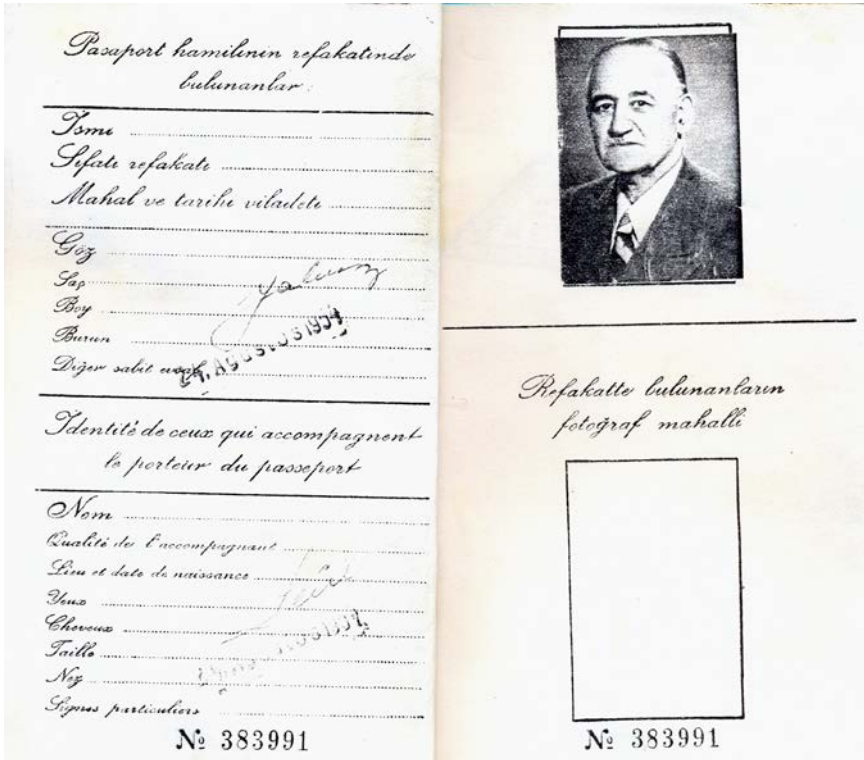 Pasaport hamilinin refakatinde
bulunanlar
İsmi
Sıfatı refakati
Mahal ve tarihi viladeti
Göz
Saç
Boy
Burun
Diğer sabit evsaf
Yalnız
24. AĞUSTOS 1954
Identité de ceux qui accompagnent
le porteur du passeport
Nom
Qualité de l'accompagnant
Lieu et date de naissance
Yeux
Cheveux
Taille
Nez
Signes particuliers
№ 383991
Refakatte bulunanların
fotoğraf mahalli
№ 383991